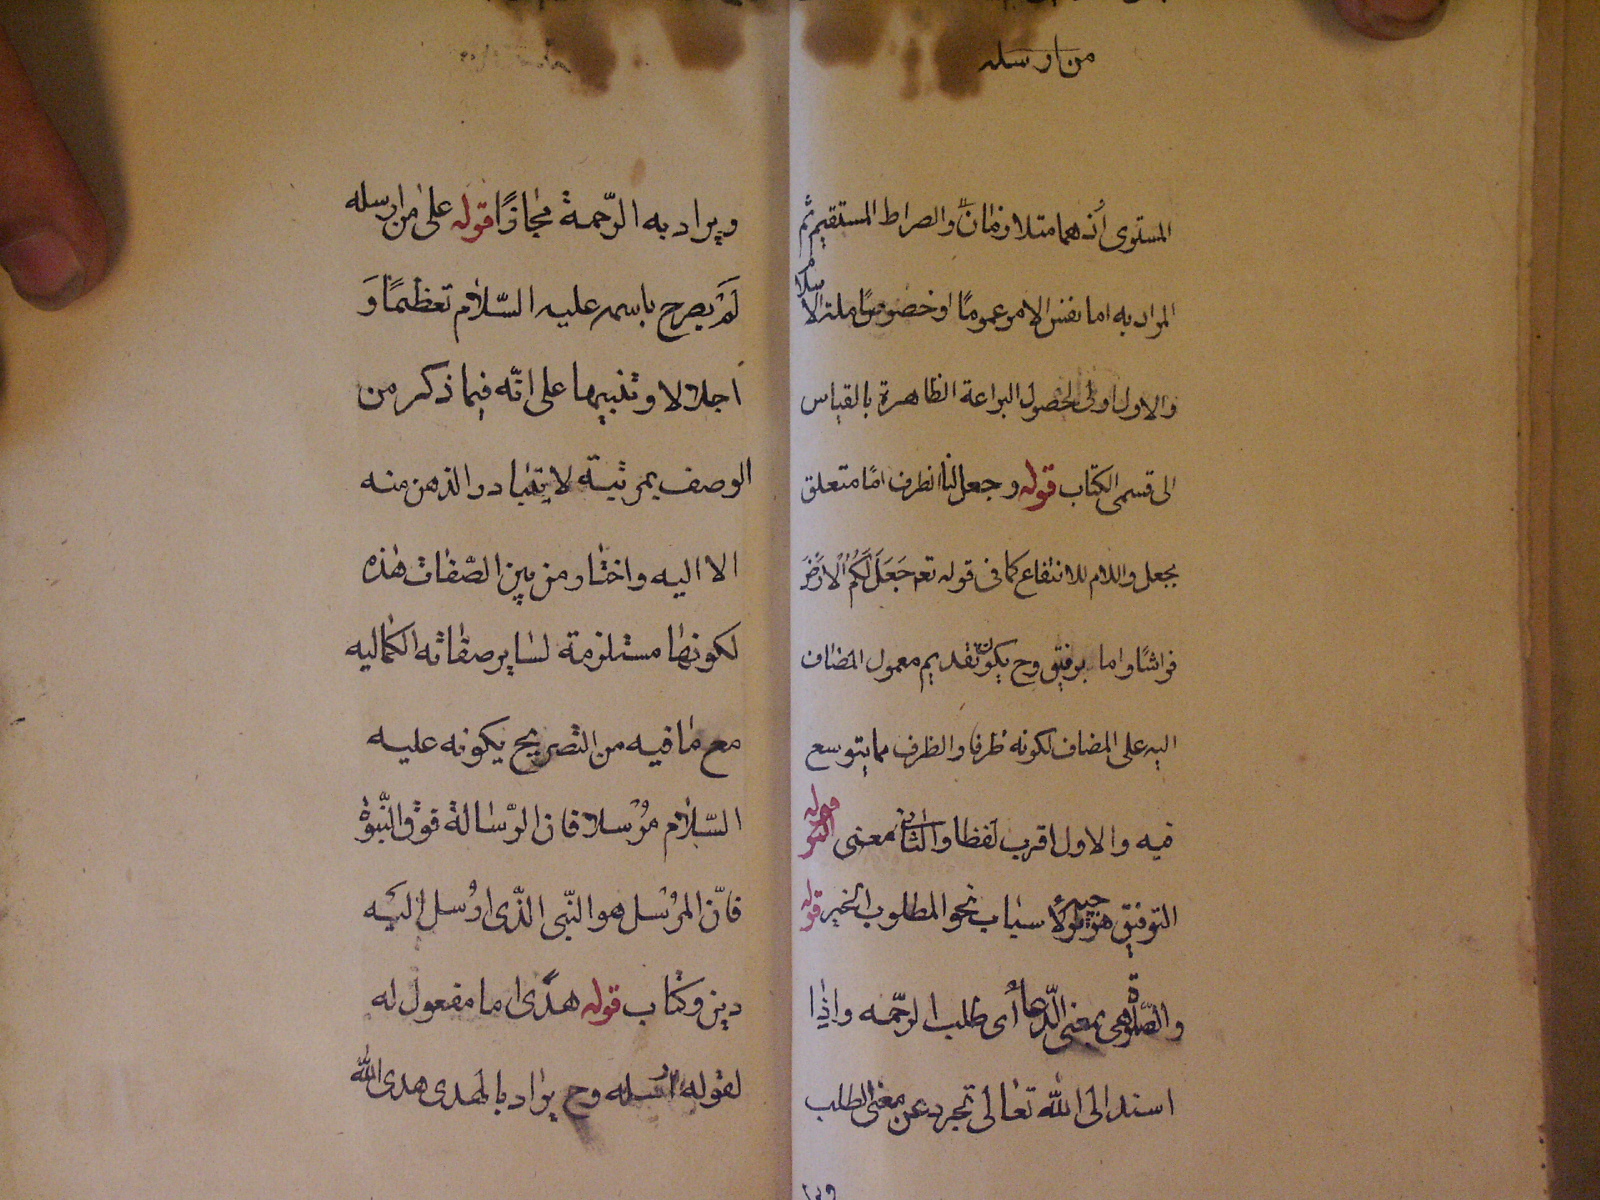 من ارسله
المستوى اذ هما متلازمان والصراط المستقيم ثم
المراد به اما نفس الامر عموما او خصوص ملة الاسلام
والاول اولى لحصول البراعة الظاهرة بالقياس
الى قسمى الكتاب قوله وجعل لنا الظرف امّا متعلق
بجعل واللام للانتفاع كما فى قوله تعم جَعَلَ لَكُمُ الْاَرْضَ
فراشًا واما برفيق وح يكون تقديم معمول المضاف
اليه على المضاف لكونه ظرفا والظرف مما يتوسع
فيه والاول اقرب لفظا والثانى معنى قوله التو
التوفيق هو توجيه الاسباب نحو المطلوب الخير قوله
والصّلوة هى بمعنى الدّعاء اى طلب الرحّمه واذا
اسند الى اللّه تعالى تجرد عن معنى الطلب
ويراد به الرّحمة مجازًا قوله على من ارسله
لَمْ يصرح باسمه عليه السّلام تعظيمًا وَ
اجلالا وتنبيها على انّه فيما ذكر من
الوصف بمرتبة لا يتبادر الذهن منه
الا اليه واختار من بين الصّفات هذه
لكونها مستلزمة لساير صفاته الكماليه
مع ما فيه من التصريح بكونه عليه
السّلام مُرْسلا فان الرّسالة فوق النّبوة
فانّ المرْسل هو النّبى الذّى اُرْسل اليه
دين وكتاب قوله هدًى اما مفعول له
لقوله ارسله وح يراد بالهدى هدى اللّه